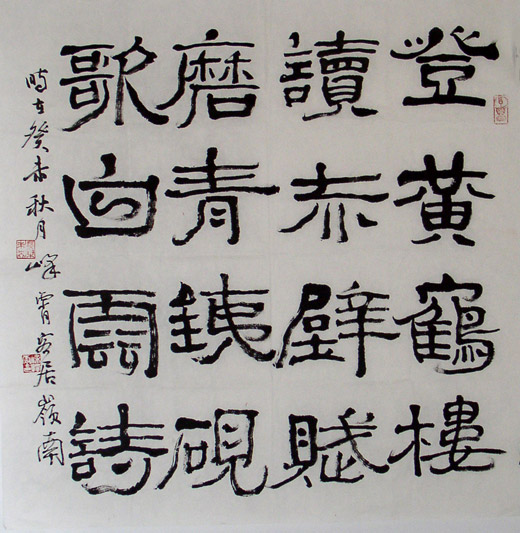 登黄鶴樓
讀赤壁賦
磨青銕硯
歌白雲詩
時在癸未秋月峰霄客居嶺南